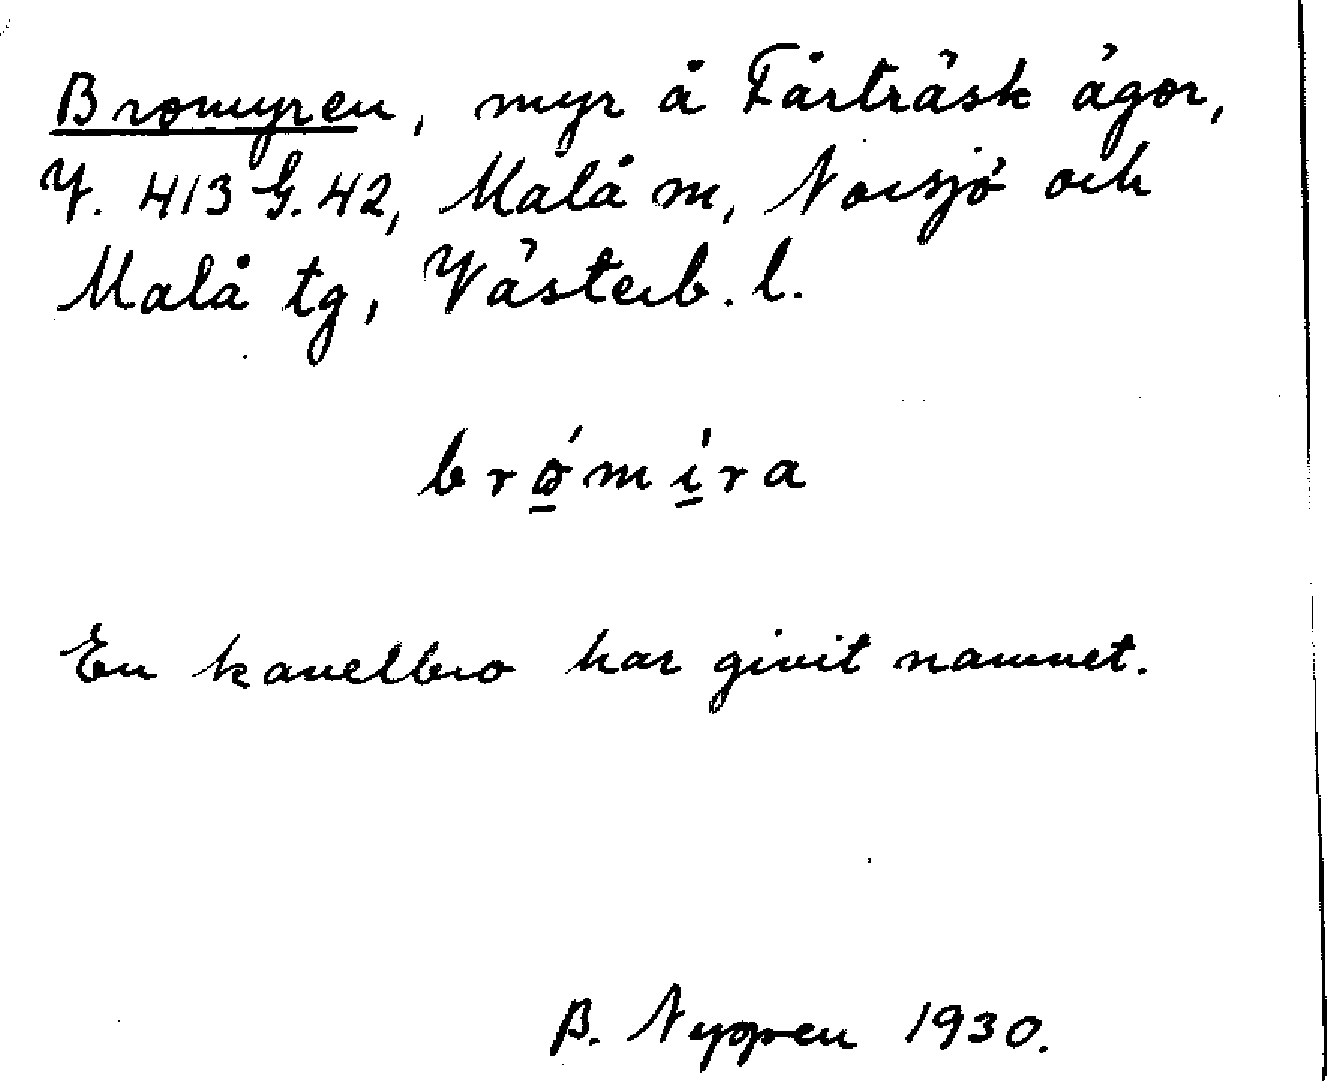 Bromyren, myr å Fårträsk ägor,
Y. 413 G. 42, Malå m, Norsjö och
Malå tg, Västerb. l.
brómìra
En kavelbro har givit namnet.
B. Nygren 1930.